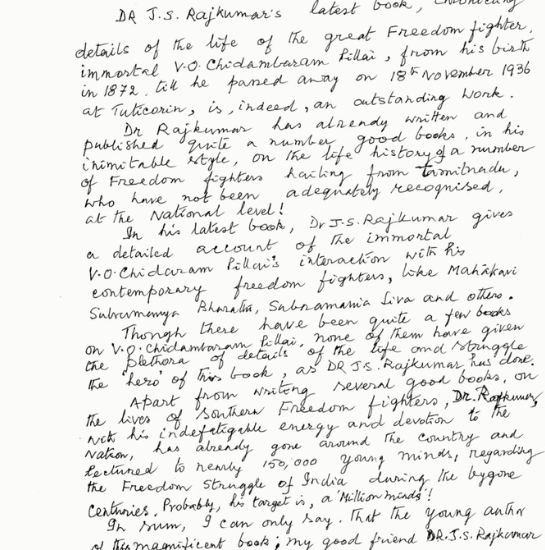 DR J.S. Rajkumar's latest book,
details of the life of the great Freedom fighter,
immortal V.O. Chidambaram Pillai, from his birth
in 1872, till he passed away on 18th November 1936
at Tuticorin, is, indeed, an outstanding work.
Dr Rajkumar has already written and
published quite a number good books, in his
inimitable style, on the life history of a number
of Freedom fighters hailing from Tamilnadu,
who have not been adequately recognised,
at the National level!
In his latest book, Dr J.S. Rajkumar gives
a detailed account of the immortal
V.O. Chidaram Pillai's interaction with his
contemporary freedom fighters, like Mahakavi
Subramanya Bharatia, Subramania Siva and others.
Though there have been quite a few books
on V.O. Chidambaram Pillai, none of them have given
the plethora of details of the life and struggle
the 'hero' of this book, as DR J.S. Rajkumar has done.
Apart from writing several good books, on
the lives of Southern Freedom fighters, Dr. Rajkumar,
with his indefetigable energy and devotion to the
Nation, has already gone around the country and
lectured to nearly 150,000 young minds, regarding
the Freedom Struggle of India during the bygone
centuries. Probably, his target is, a 'Million minds'!
In sum, I can only say. That the young author
of this magnificent book; my good friend DR.J.S. Rajkumar